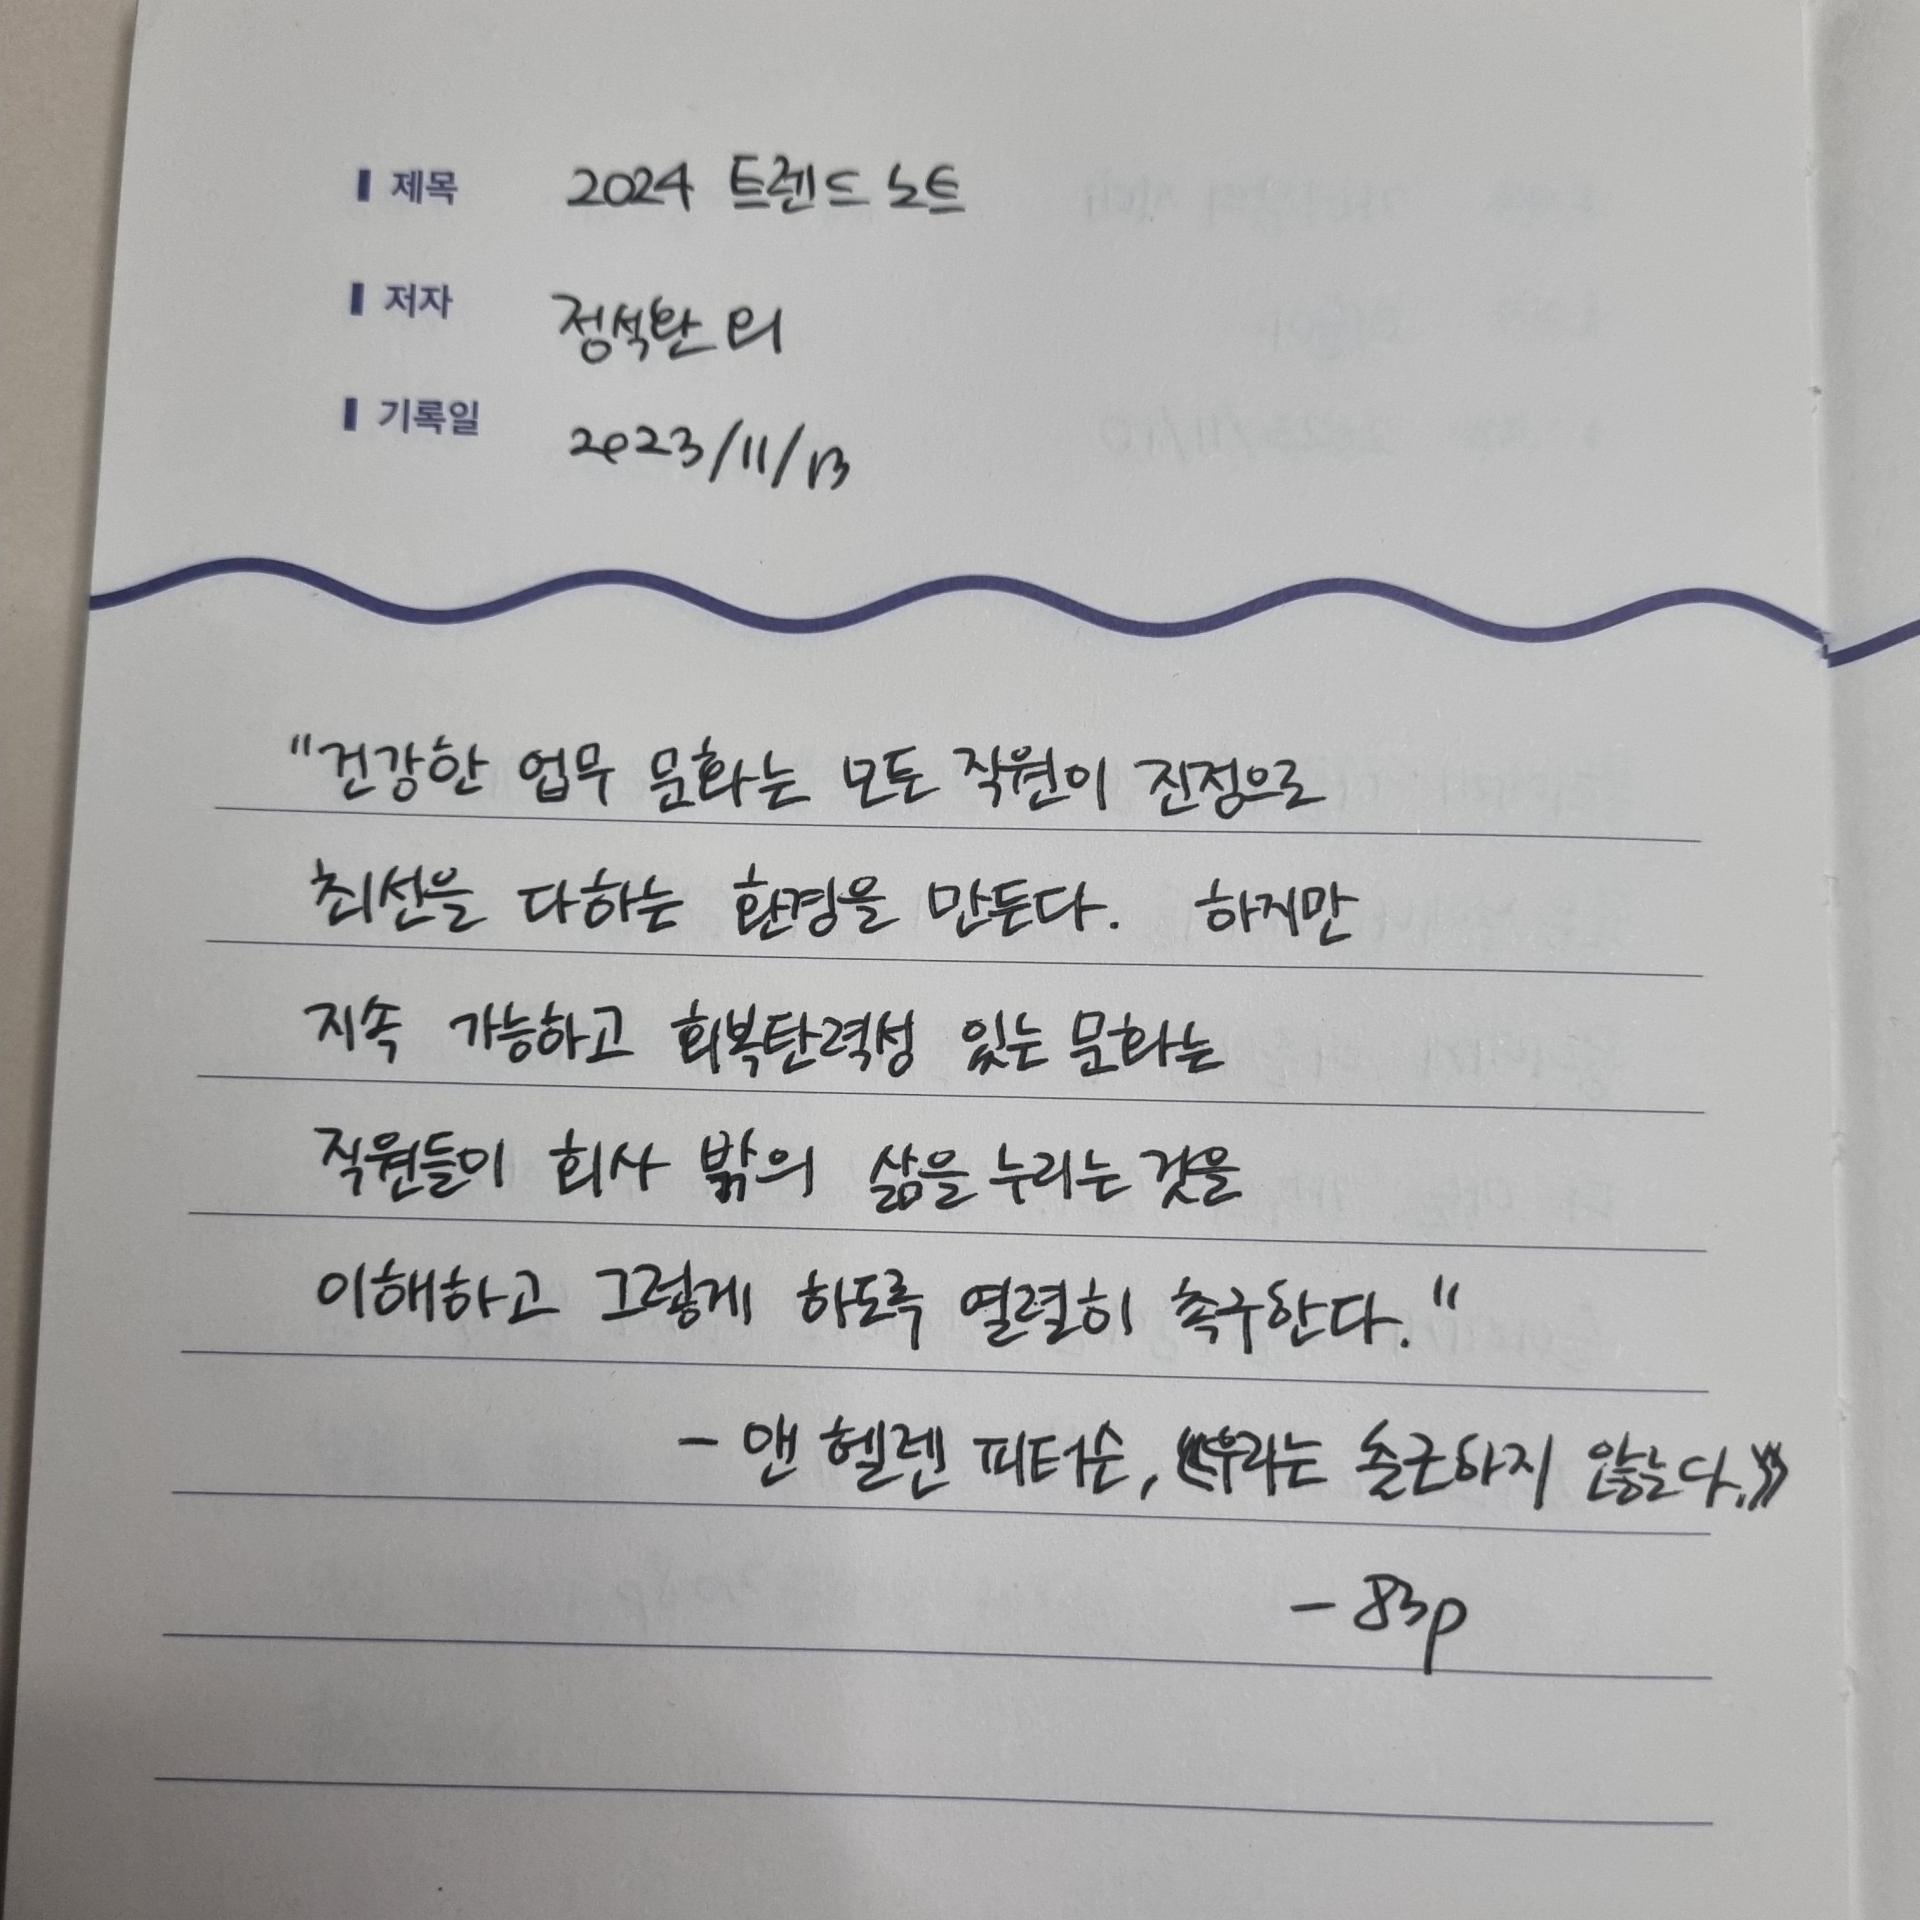 제목 2024 트렌드 노트
저자 정석환 외
기록일 2023/11/13
"건강한 업무 문화는 모든 직원이 진정으로
최선을 다하는 환경을 만든다. 하지만
지속 가능하고 회복탄력성 있는 문화는
직원들이 회사 밖의 삶을 누리는 것을
이해하고 그렇게 하도록 열렬히 촉구한다."
- 앤 헬렌 피터슨, 《우리는 출근하지 않는다.》
- 83p